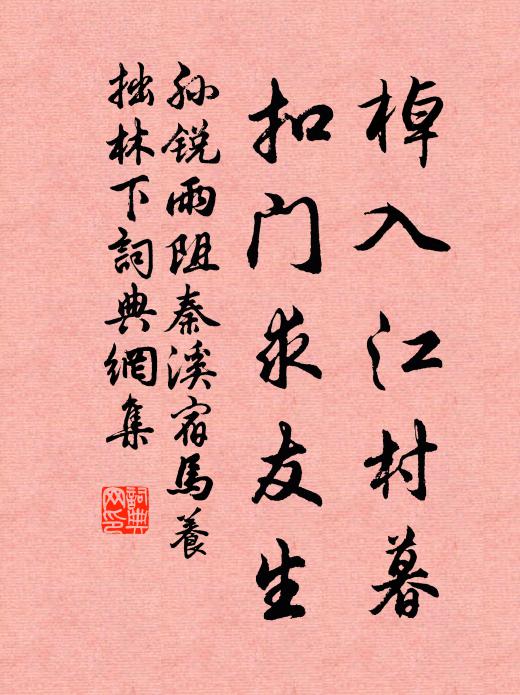 棹入江村暮
扣门求友生
孙锐雨阻秦溪宿马養
拙林下詞典網集
詞典网印